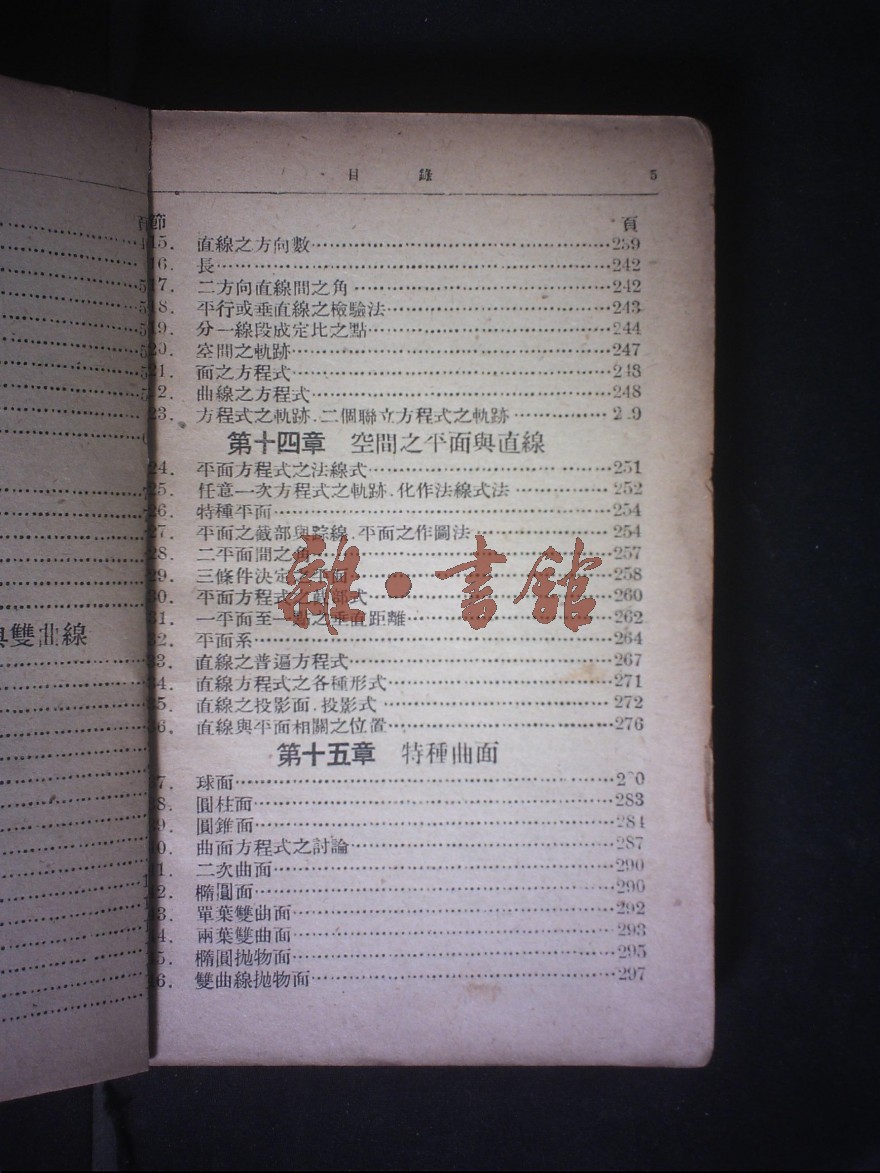 目 錄 5
節 頁
15. 直線之方向數 239
16. 長 242
17. 二方向直線間之角 242
18. 平行或垂直線之檢驗法 243
19. 分一線段成定比之點 244
20. 空間之軌跡 247
21. 面之方程式 248
22. 曲線之方程式 248
23. 方程式之軌跡.二個聯立方程式之軌跡 2 9
第十四章 空間之平面與直線
24. 平面方程式之法線式 251
25. 任意一次方程式之軌跡.化作法線式法 252
26. 特種平面 254
27. 平面之截部與踪線.平面之作圖法 254
28. 二平面間之角 257
29. 三條件決定之平面 258
30. 平面方程式之截部式 260
31. 一平面至一點之垂直距離 262
32. 平面系 264
33. 直線之普遍方程式 267
34. 直線方程式之各種形式 271
35. 直線之投影面.投影式 272
36. 直線與平面相關之位置 276
第十五章 特種曲面
7. 球面 2 0
8. 圓柱面 283
9. 圓錐面 284
0. 曲面方程式之討論 287
1. 二次曲面 290
2. 橢圓面 290
3. 單葉雙曲面 292
4. 兩葉雙曲面 293
5. 橢圓拋物面 295
6. 雙曲線拋物面 297
雙曲線
雜·書館